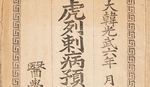 大韓光武六年 月
虎列刺病預
醫學